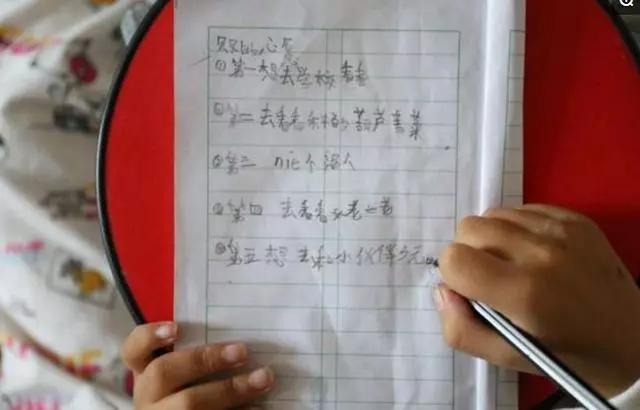 心愿
①第一想去学校看看
②第二去看看的葫芦菜
③第三 nie个泥人
④第四 去看看
⑤第五想 去和小伙伴玩